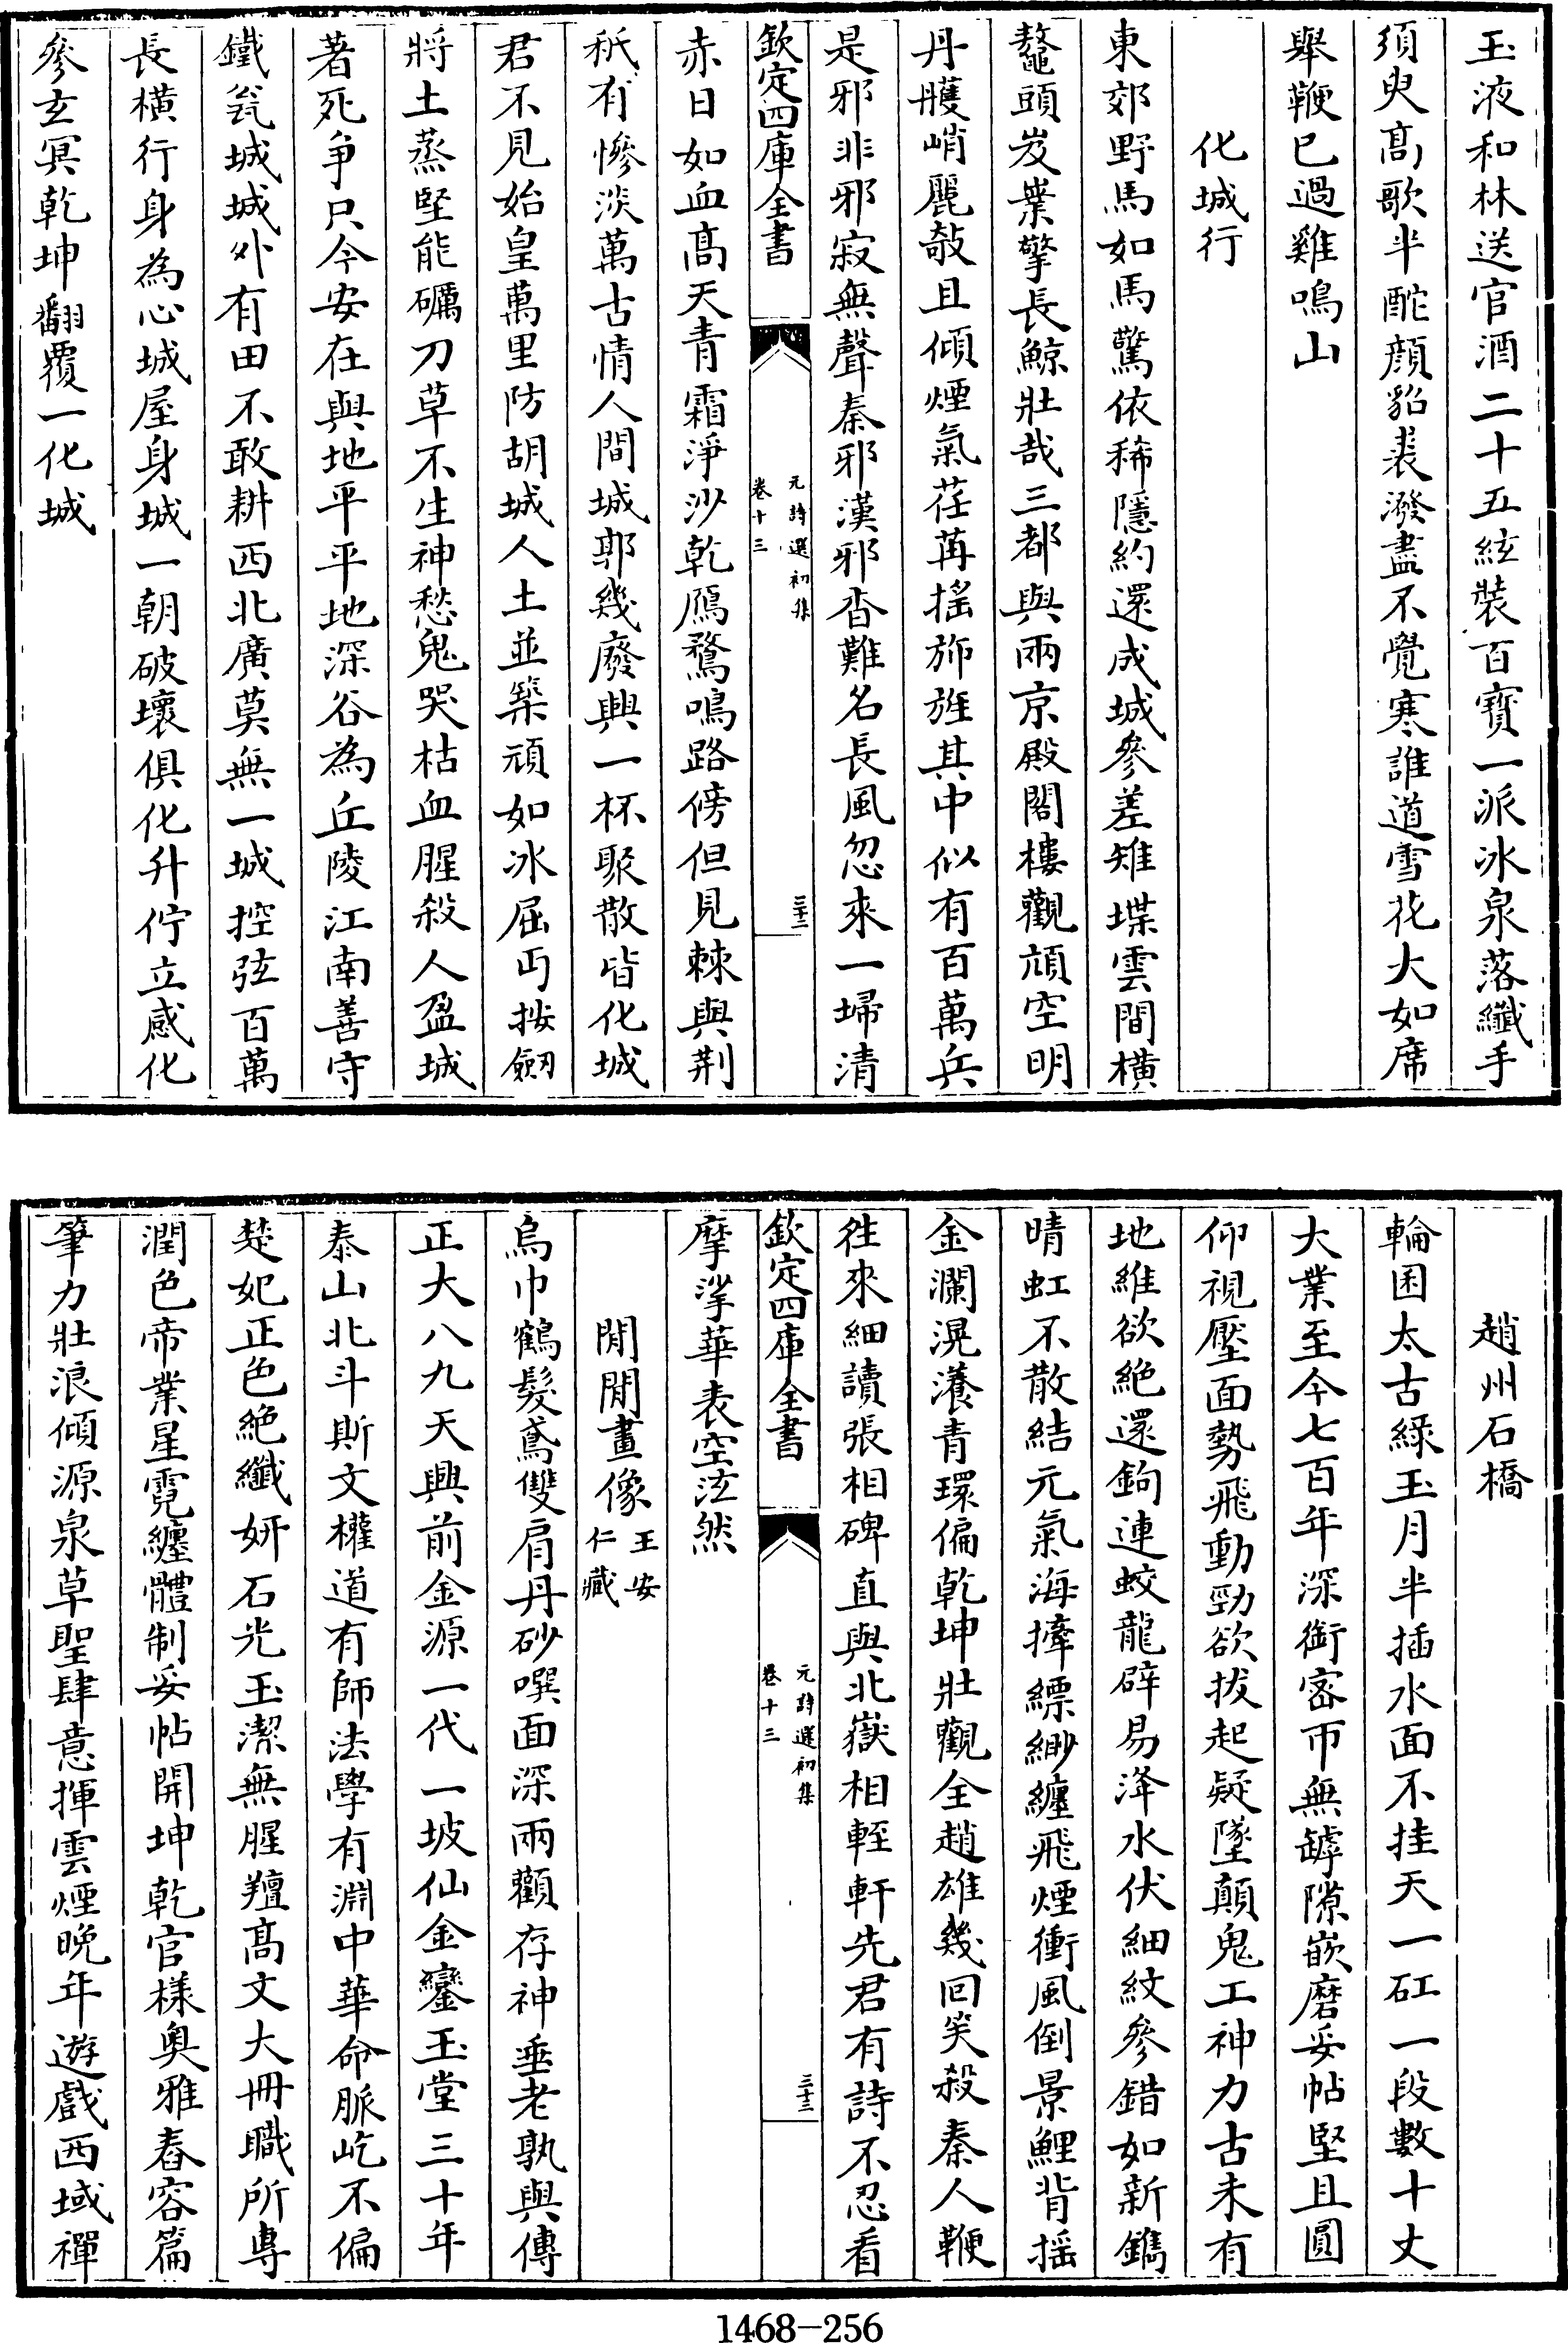 玉液和林送官酒二十五絃裝百寶一派冰泉落纖手
須臾髙歌半酡顔貂裘潑盡不覺寒誰道雪花大如席
舉鞭已過雞鳴山
化城行
東郊野馬如馬驚依稀隱約還成城參差雉堞雲間橫
鼇頭岌業擎長鯨壯哉三都與兩京殿閣樓觀頏空明
丹雘峭麗敧且傾煙氣荏苒揺斾旌其中似有百萬兵
是邪非邪寂無聲秦邪漢邪杳難名長風忽來一埽清
欽定四庫全書
元詩選初集
卷十三
三十二
赤日如血髙天青霜淨沙乾鴈鶩鳴路傍但見棘與荆
秖有慘淡萬古情人間城郭幾廢興一杯聚散皆化城
君不見始皇萬里防胡城人土並築頑如冰屈丐按劒
將土蒸堅能礪刀草不生神愁鬼哭枯血腥殺人盈城
著死爭只今安在與地平平地深谷為丘陵江南善守
鐵瓮城城外有田不敢耕西北廣莫無一城控弦百萬
長橫行身為心城屋身城一朝破壞俱化升佇立感化
參玄冥乾坤翻覆一化城
趙州石橋
輪囷太古緑玉月半插水面不挂天一矼一段數十丈
大業至今七百年深銜宻帀無罅隙嵌磨妥帖堅且圓
仰視壓面勢飛動勁欲拔起疑墜顛鬼工神力古未有
地維欲絶還鉤連蛟龍辟易洚水伏細紋參錯如新鐫
晴虹不散結元氣海擡縹緲纏飛煙衝風倒景鯉背揺
金瀾滉瀁青環偏乾坤壯觀全趙雄幾回笑殺秦人鞭
徃來細讀張相碑直與北嶽相輊軒先君有詩不忍看
欽定四庫全書
元詩選初集
卷十三
三十三
摩挲華表空泫然
閒閒畫像王安仁藏
烏巾鶴髮鳶雙肩丹砂噀面深兩顴存神垂老孰與傳
正大八九天興前金源一代一坡仙金鑾玉堂三十年
泰山北斗斯文權道有師法學有淵中華命脈屹不偏
楚妃正色絶纖妍石光玉潔無腥羶髙文大冊職所専
潤色帝業星霓纏體制妥帖開坤乾官様奥雅舂容篇
筆力壯浪傾源泉草聖肆意揮雲煙晚年遊戲西域禪
1468-256